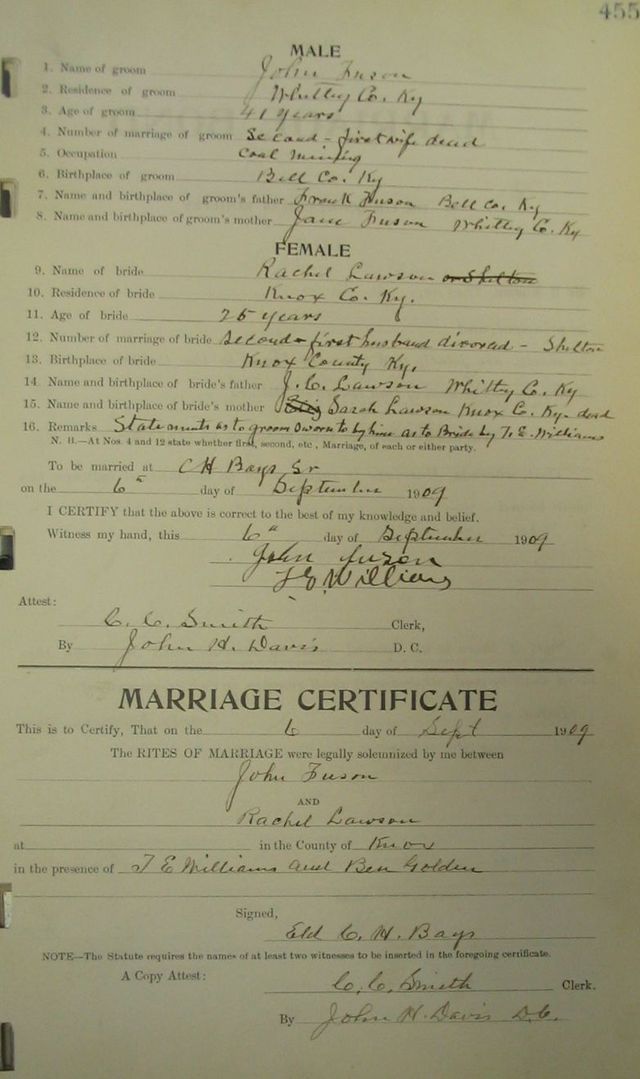 455
MALE
1. Name of groom John Fuson
2. Residence of groom Whitley Co. Ky
3. Age of groom 41 years
4. Number of marriage of groom Second - first wife dead
5. Occupation Coal Mining
6. Birthplace of groom Bell Co. Ky
7. Name and birthplace of groom's father Frank Fuson Bell Co. Ky
8. Name and birthplace of groom's mother Jane Fuson Whitley Co. Ky
FEMALE
9. Name of bride Rachel Lawson or Shelton
10. Residence of bride Knox Co. Ky.
11. Age of bride 25 years
12. Number of marriage of bride Second - first husband divorced - Shelton
13. Birthplace of bride Knox County Ky.
14 Name and birthplace of bride's father J. C. Lawson Whitley Co. Ky
15. Name and birthplace of bride's mother Sarah Lawson Knox Co. Ky - dead
16. Remarks Statements as to groom sworn to by him as to Bride by T. E. Williams
N. B.—At Nos. 4 and 12 state whether first, second, etc., Marriage, of each or either party.
To be married at C H Bays Sr
on the 6" day of September 1909
I CERTIFY that the above is correct to the best of my knowledge and belief.
Witness my hand, this 6" day of September 1909
John Fuson
T E Williams
Attest:
C. C. Smith Clerk,
By John H. Davis D. C.
MARRIAGE CERTIFICATE
This is to Certify, That on the 6 day of Sept 1909
The RITES OF MARRIAGE were legally solemnized by me between
John Fuson
AND
Rachel Lawson
at in the County of Knox
in the presence of T E Williams and Ben Golden
Signed,
Eld C. H. Bays
NOTE—The Statute requires the names of at least two witnesses to be inserted in the foregoing certificate.
A Copy Attest: C. C. Smith Clerk.
By John H. Davis D.C.